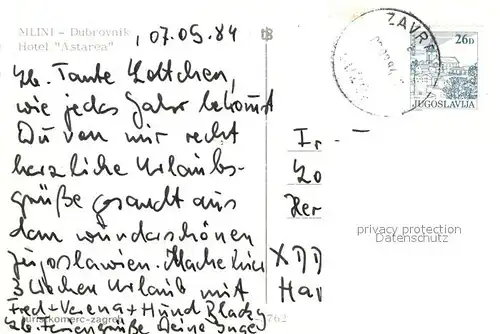 MLINI - Dubrovnik
Hotel "Astarea"
, 07.05.84
Lb. Tante Lottchen,
wie jedes Jahr bekommst
Du von mir recht
herzliche Urlaubs-
grüße gesandt aus
dem wunderschönen
Jugoslawien. Mache hier
3 Wochen Urlaub mit
Fred + Verena + Hund Blacky
Lb. Feriengrüße Deine Inge
turistkomerc-zagreb
762
26D
JUGOSLAVIJA
Fr.
Lo
Her
privacy protection
Datenschutz
XDD
Han